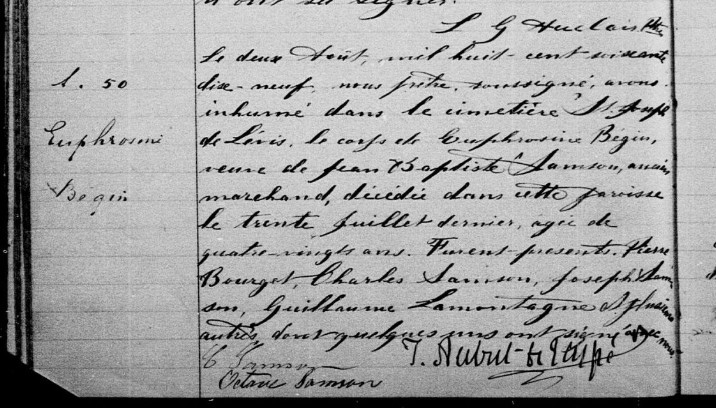 L G Auclair Ptre
S. 50
Euphrosine
Bégin
Le deux Août, mil huit-cent-soixante
dix-neuf, nous prêtre, soussigné, avons
inhumé dans le cimetière St Joseph
de Lévis, le corps de Euphrosine Bégin,
veuve de Jean Baptiste Samson, ancien
marchand, décédée dans cette paroisse
le trente Juillet dernier, agée de
quatre-vingts ans. Furent-présents. Pierre
Bourget, Charles Samson, Joseph Sam
son, Guillaume Lamontagne & plusieurs
autres dont quelques uns ont signé avec nous
C Samson
Octave Samson